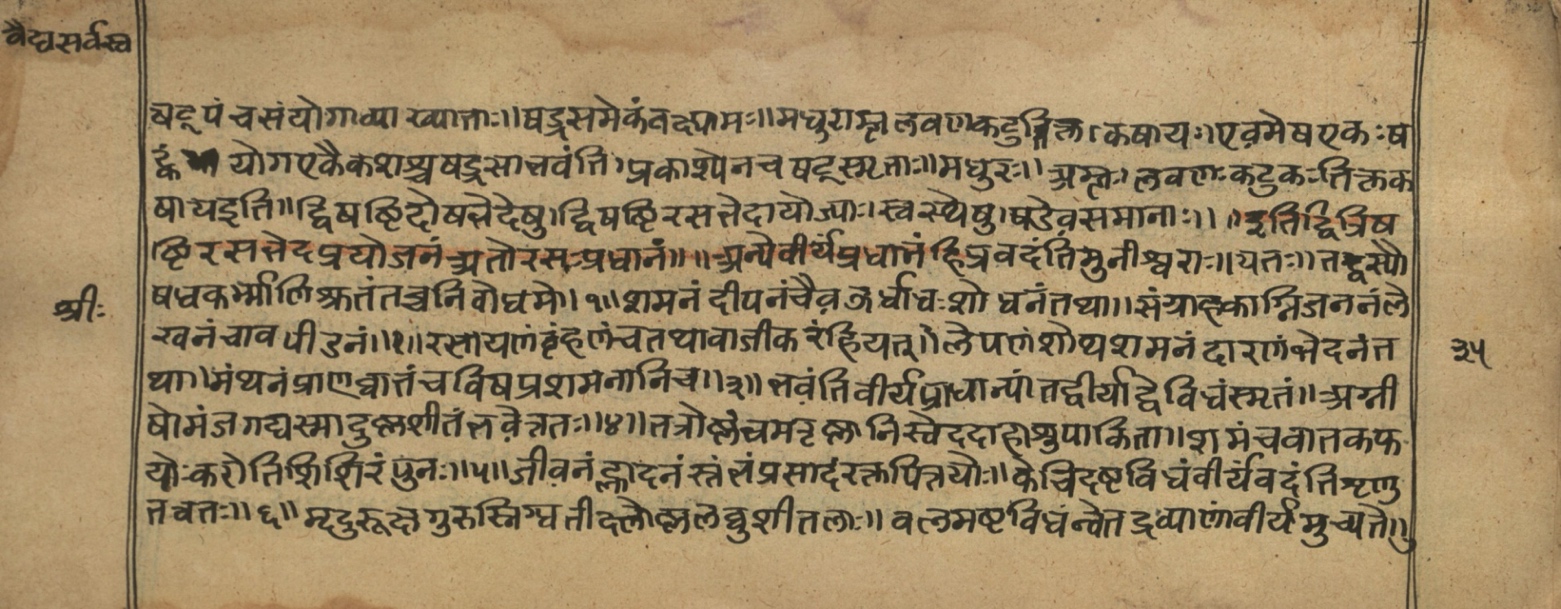 वैद्यसर्वस्व
षट्पंचसंयोगाव्याख्याताः॥षड्रसमेकंवदप्यामः॥मधुराम्ललवणकटुतिक्त।कषायः।एवमेषएकःष
योगएकैकशश्चषड्रसाभवंति।प्रकाश्पेनचषट्स्मृताः॥मधुरः॥अम्लः।लवणःकटुकःतिक्तक
षायइति॥द्विषष्टिदोषभेदेषु।द्विषष्टिरसभेदायोज्याः।स्वस्थेषु।षडेवसमानाः।।॥इतिद्वित्रिष
ष्टिरसभेदप्रयोजनंअतोरसःप्रधानं॥॥अन्येवीर्यंप्रधानंहिप्रवदंतिमुनीश्वराः॥यतः॥तद्वस्यौ
षधकर्म्माणिश्रुतंतच्चनिबोधमे॥१॥शमनंदीपनंचैवऊर्धाधःशोधनंतथा॥संग्राहकाग्निजननंले
श्रीः
खनंचावपीडनं॥२॥रसायणंबृंहणंचतथावाजीकरंहियत्॥लेपणंशोथशमनंदारणंभेदनंत
३५
था॥मंथनंप्राणघातंचविषप्रशमनानिच॥३॥भवंतिवीर्यप्राधान्यंतद्वीर्याद्वेविधंस्मृतं॥अग्नी
षोमंजगद्यस्मादुष्णशीतंभवेत्ततः॥४॥तत्रोष्णंभ्रमतृष्णानिस्वेददाहाशुपाकिता॥शमंचवातकफ
योःकरोतिशिशिरंपुनः॥५॥जीवनंह्लादनंस्तंभंप्रसादंरक्तपित्तयोः॥केचिदष्टविधंवीर्यंवदंतिशृणु
तवतः॥६॥मृदुरूक्षगुरुस्निग्धतीक्ष्णोष्णलघुशीतलाः॥वलमष्टविधंत्वेतद्रव्याणांवीर्यमुच्यते॥